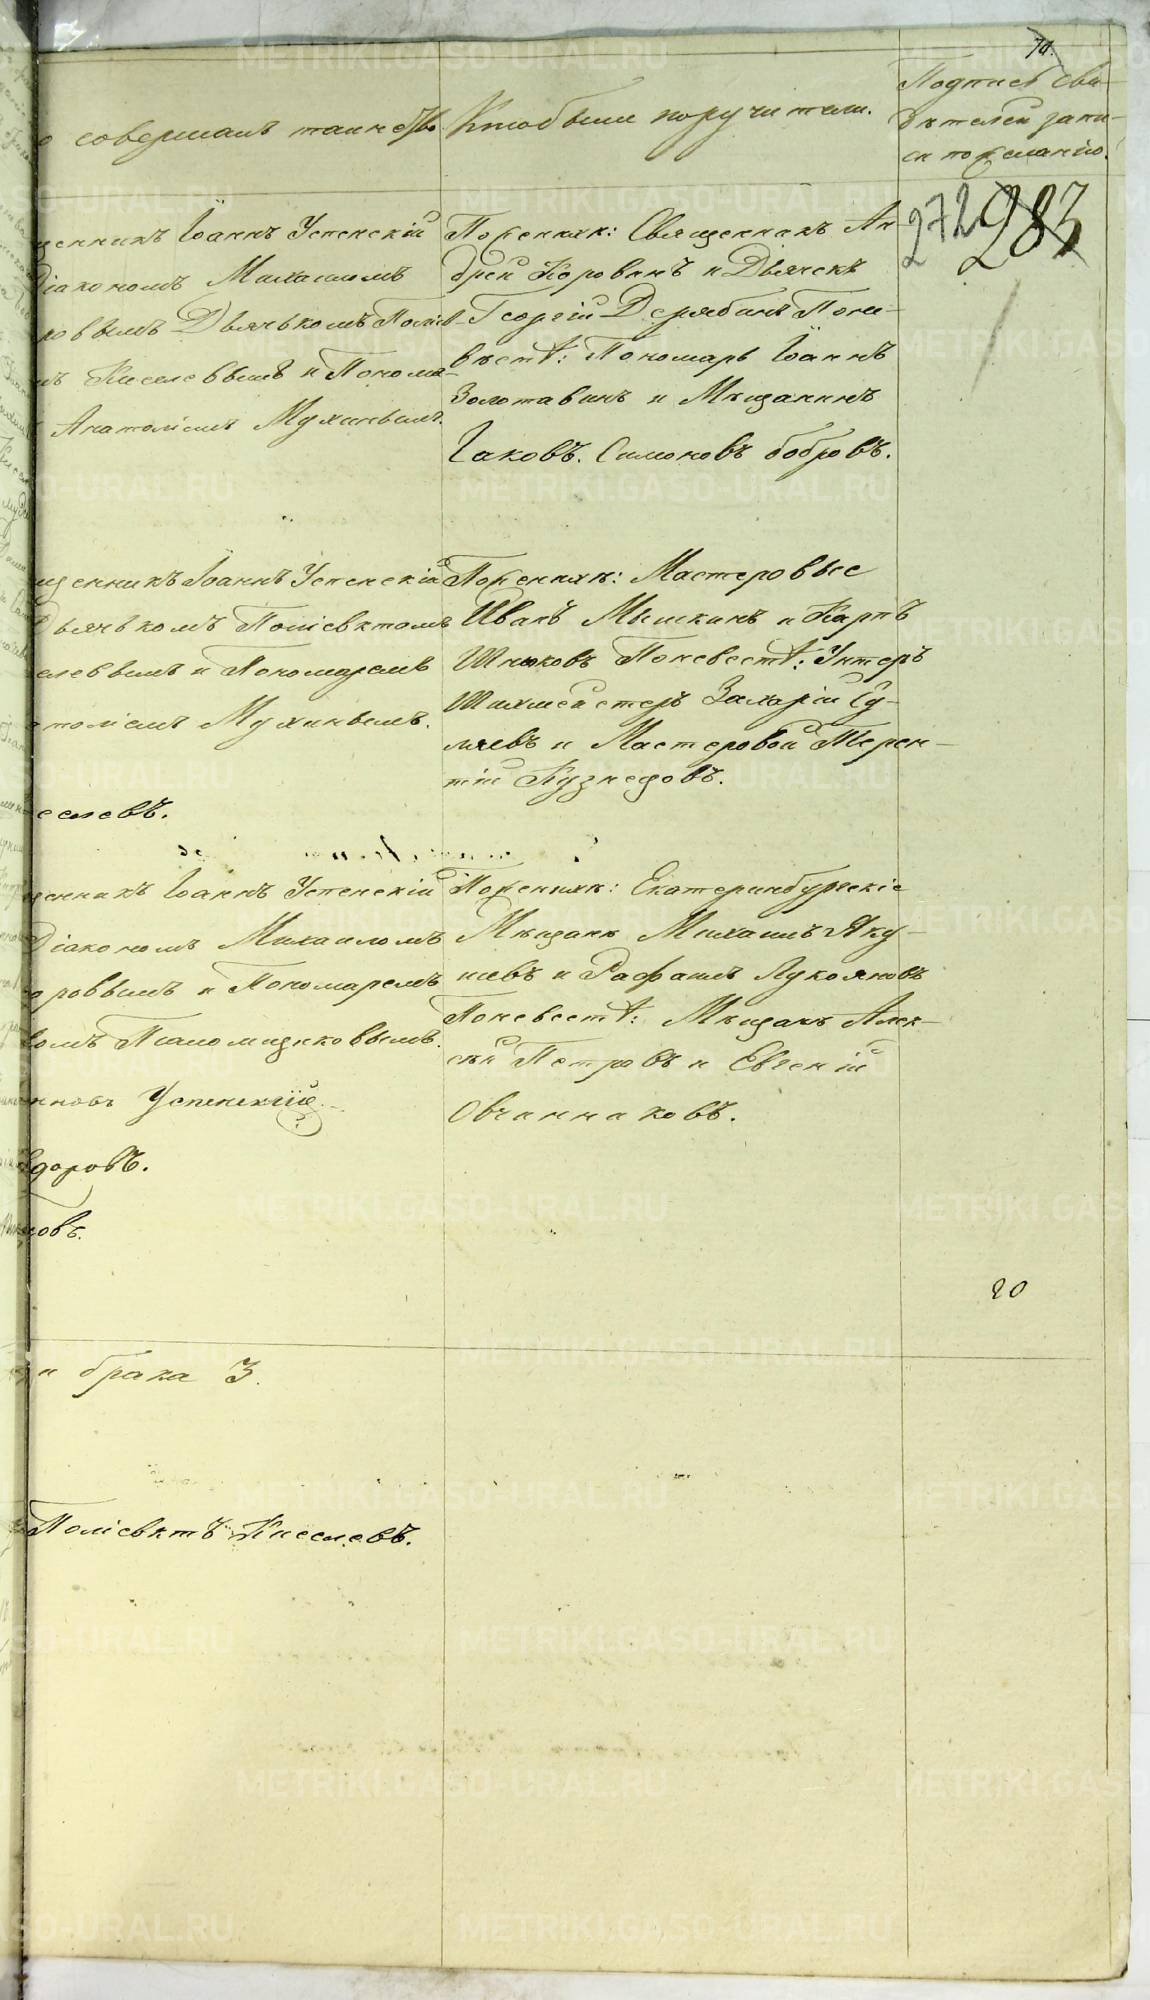 70.
о совершалъ таинство
Кто были поручители.
Подпись сви-
дѣтелей запи-
си по желанію.
272 283
щенникъ Іоаннъ Успенскій
Діакономъ Михаиломъ
ковымъ Дьячькомъ Поліев-
мъ Киселевымъ и Понома-
Анатоліемъ Мухинымъ.
По женихѣ: Священникъ Ан
дрей Коровинъ и Дьячекъ
Георгій Дерябинъ По не-
вѣстѣ: Пономарь Іоаннъ
Золотавинъ и Мѣщанинъ
Іаковъ. Симоновъ бобровъ.
щенникъ Іоаннъ Успенскій
Дьячькомъ Поліевктомъ
селевымъ и Пономаремъ
атоліемъ Мухинымъ.
еселевъ.
По женихѣ: Мастеровые
Иванъ Мышкинъ и Карпъ
Шнюковъ По невестѣ: Унтеръ
Шихмейстеръ Захарій Су-
ляевъ и Мастеровой Терен-
тій Кузнецовъ.
щенникъ Іоаннъ Успенскій
Діакономъ Михаиломъ
оровымъ и Пономаремъ
вомъ Псаломщиковымъ.
нновъ Успенскій.
ѣдоровъ.
цовъ.
По женихѣ: Екатеринбургскіе
Мѣщане Михаилъ Яку-
шевъ и Рафаилъ Лукояновъ
По невестѣ: Мѣщане Алек-
сѣй Петровъ и Евгеній
Овчинниковъ.
20
и брака 3.
Поліевктъ Киселевъ.